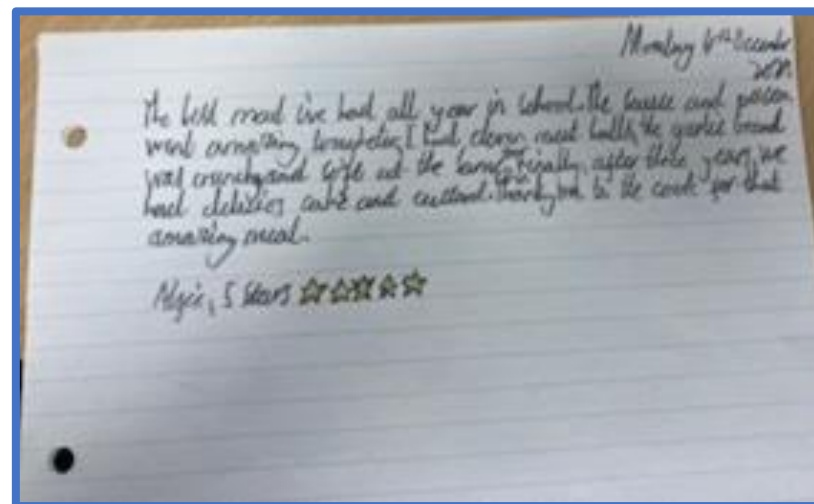 Monday 6th December
The best meal ive had all year in school. The sauce and
went amazing together, I had meat balls, the garlic bread
was crunchy and soft at the same Finally, after three years, we
had cake and custard. to the cook for that
amazing meal.
5 stars ☆☆☆☆☆